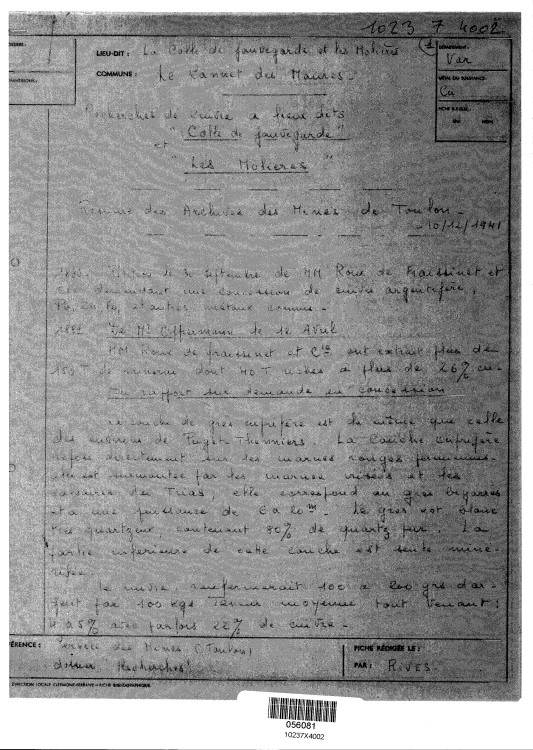 1023 7 4002
LIEU-DIT : La Colle de Sauvegarde et les Molières
(1)
DÉPARTEMENT :
Var
COMMUNE : Le Cannet des Maures -
MÉTAL OU SUBSTANCE
Cu
Recherches de cuivre a lieux dits
"Colle de Sauvegarde"
et
"Les Molieres"
OUI NON
Résumé des Archives des Mines de Toulon -
10/12/1941
de 30 Septembre de MM Roux de Fraissinet et
Cie demandant une concession de cuivre argentifère,
Pb, Zn, Fe, et autres métaux connus -
1882 De Mr de St Avul
MM Roux de fraissinet et Cie ont extrait plus de
150 T de minerai dont 40 T riches a plus de 26% Cu -
Du rapport sur demande en concession
La couche de grès cuprifère est la même que celle
des environs de Puget-Theniers. La Couche cuprifère
repose directement sur les marnes rouges permiennes,
elle est surmontée par les marnes irisées et les
calcaires du Trias, elle correspond au grès bigarrés
et a une puissance de 6 a 20m - Le grès est blanc
très quartzeux, contenant 80% de quartz pur. La
partie inférieure de cette couche est seule miné-
ralisée.
Le cuivre renfermerait 100 a 200 grs d'ar-
gent par 100 kgs teneur moyenne tout venant :
4 a 5% avec parfois 22% de cuivre -
RÉFÉRENCE : Service des Mines (Toulon)
dossier Recherches
FICHE RÉDIGÉE LE :
PAR : RIVES
DIRECTION LOCALE CLERMONT-FERRAND - FICHE BIBLIOGRAPHIQUE
056081
10237X4002